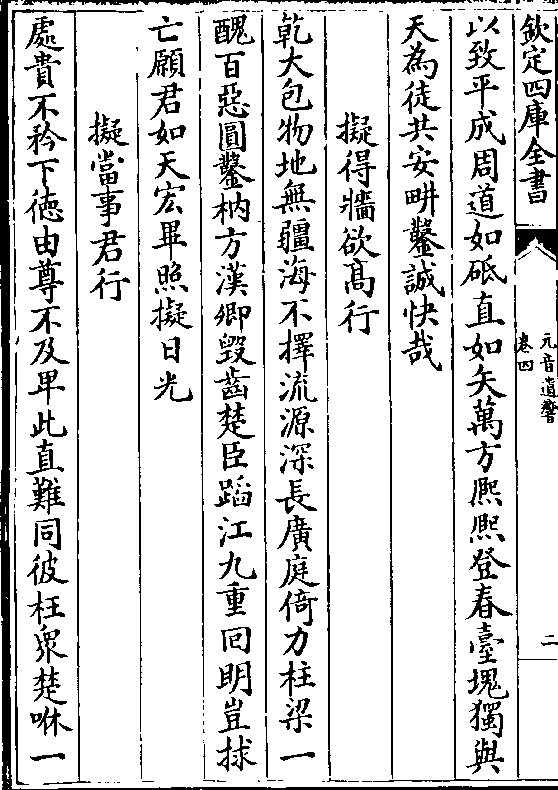 欽定四庫全書
元音遺響
卷四
二
以致平成周道如砥直如矢萬方熈熈登春臺塊獨與
天為徒共安畊鑿誠快哉
擬得牆欲髙行
乾大包物地無疆海不擇流源深長廣庭倚力柱梁一
醜百惡圓鑿枘方漢卿毀齒楚臣蹈江九重回明豈捄
亡願君如天宏畢照擬日光
擬當事君行
處貴不矜下徳由尊不及卑此直難同彼枉衆楚咻一